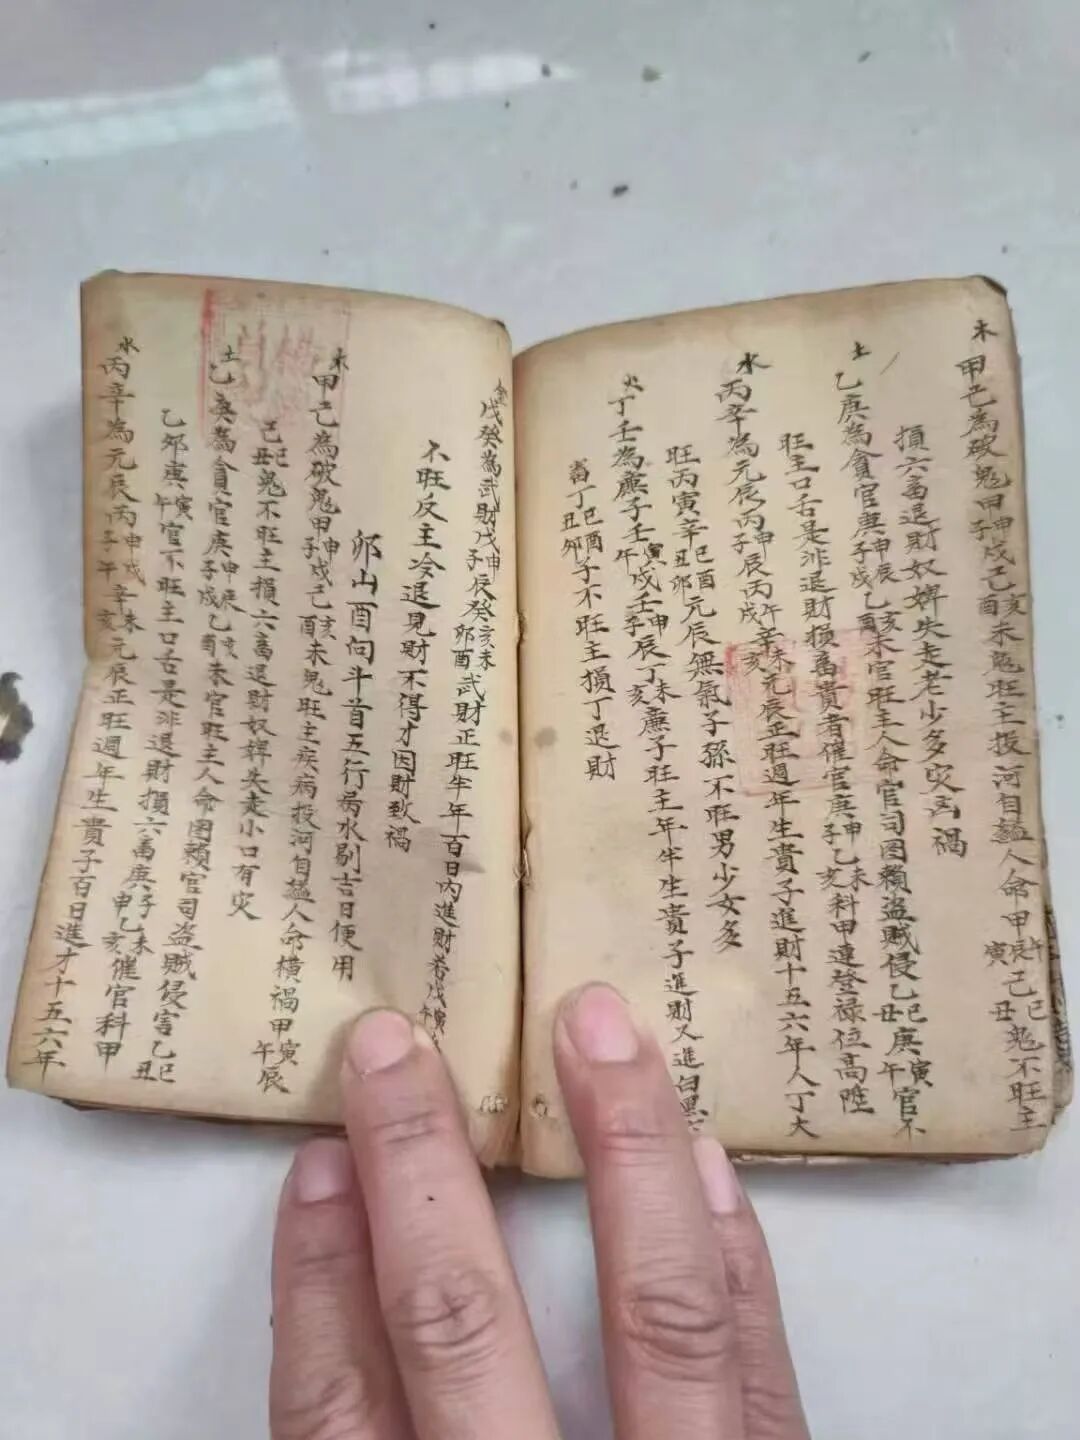 木
甲己為破鬼甲申子戌己亥酉未鬼旺主投河自縊人命甲午辰寅己巳丑鬼不旺主
損六畜退財奴婢失走老少多灾凶禍
土
乙庚為貪官庚申子辰戌乙亥酉未官旺主人命官司图賴盗賊侵乙巳丑庚寅午官不
旺主口舌是非退財損畜貴者催官庚申子乙未亥科甲連登禄位高陞
水
丙辛為元辰丙申子辰丙午戌辛未亥元辰正旺週年生貴子進財十五六年人丁大
旺丙寅辛巳酉丑卯元辰無氣子孫不旺男少女多
火
丁壬為廉子壬寅午戌壬申子辰丁未亥廉子旺主年半生貴子進財又進白黑
畜丁巳酉丑卯子不旺主損丁退財
金
戊癸為武財戊申子辰癸亥未卯酉武財正旺半年百日内進財若戊寅午
不旺反主冷退見財不得才因財致禍
卯山酉向斗首五行内水剔吉日便用
木
甲己為破鬼甲申子戌己亥酉未鬼旺主疾病投河自縊人命横禍甲寅午辰
己巳丑鬼不旺主損六畜退財奴婢失走小口有灾
土
乙庚為貪官庚申子辰戌乙亥酉未官旺主人命图賴官司盗賊侵害乙巳丑
乙卯庚寅午官不旺主口舌是非退財損六畜庚子申乙未亥催官科甲
水
丙辛為元辰丙申子戌午辛未亥元辰正旺週年生貴子百日進才十五六年